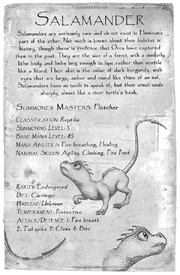 SALAMANDER
Salamanders are extremely rare and do not exist in Hominum's
part of the ether. Not much is known about their habitat in
history, though there is evidence that Orcs have captured
them in the past. They are the size of a ferret, with a similarly
lithe body and limbs long enough to lope rather than scuttle
like a lizard. Their skin is the colour of dark burgundy, with
eyes that are large, amber and round like those of an owl.
Salamanders have no teeth to speak of, but their snout ends
sharply, almost like a river turtle's beak.
SUMMONER MASTERS: Fletcher
CLASSIFICATION: Reptilia
SUMMONING LEVEL: 5
BASE MANA LEVEL: 45
MANA ABILITIES: Fire breathing, Healing
NATURAL SKILLS: Agility, Climbing, Fire Proof
RARITY: Endangered
DIET: Carnivore
HABITAT: Unknown
TEMPERAMENT: Protective
ATTACK/DEFENCE: 1: Fire breath
2: Tail spike 3: Claws & Bite